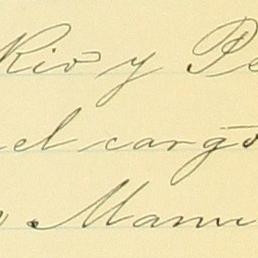 Rio y Pe
el cargo
Manu